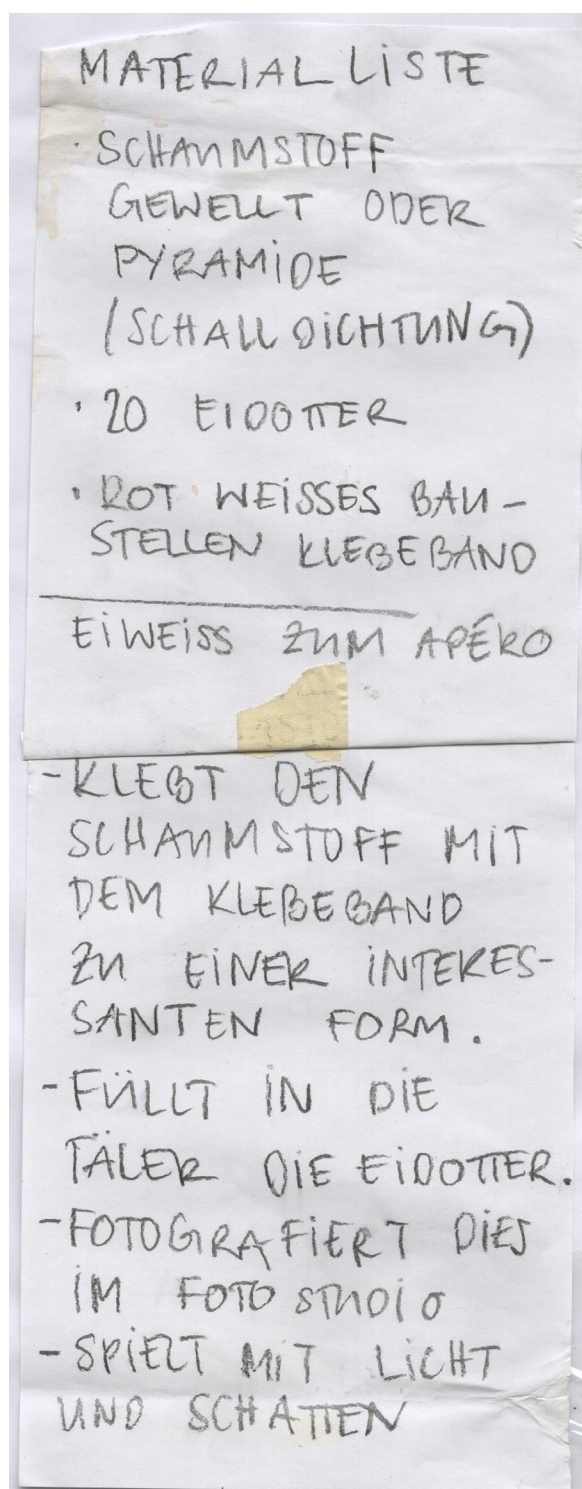 MATERIALLISTE
· SCHAUMSTOFF
GEWELLT ODER
PYRAMIDE
(SCHALLDICHTUNG)
· 20 EIDOTTER
· ROT WEISSES BAU-
STELLEN KLEBEBAND
EIWEISS ZUM APÉRO
- KLEBT DEN
SCHAUMSTOFF MIT
DEM KLEBEBAND
ZU EINER INTERES-
SANTEN FORM.
- FÜLLT IN DIE
TÄLER DIE EIDOTTER.
- FOTOGRAFIERT DIES
IM FOTOSTUDIO
- SPIELT MIT LICHT
UND SCHATTEN